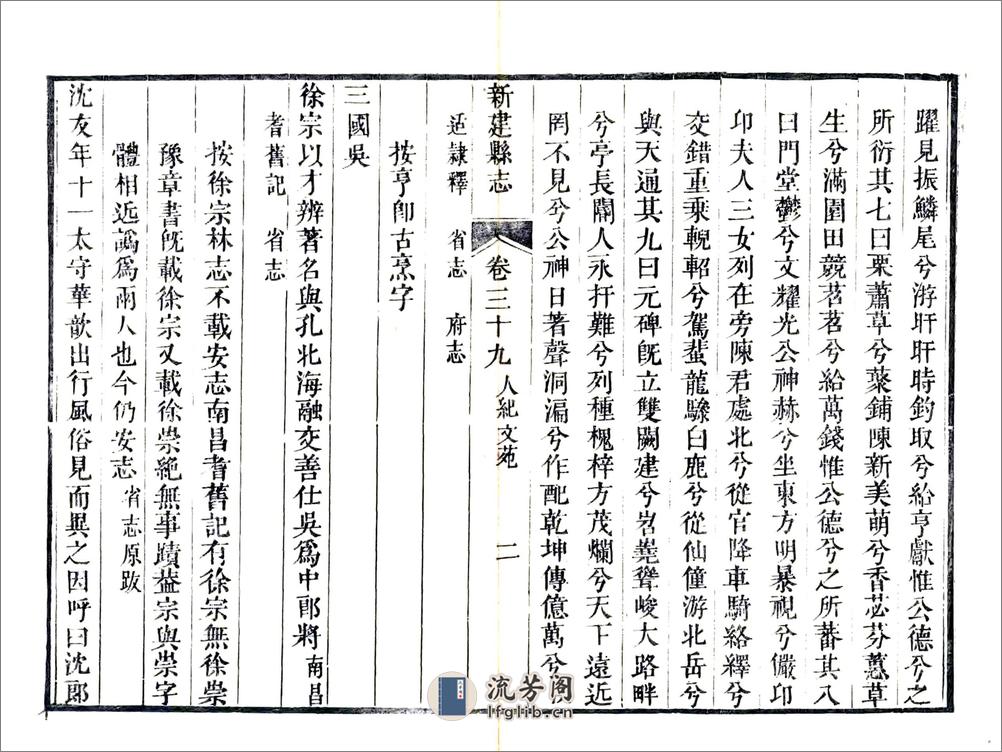 躍見振鱗尾兮游旰旰時釣取兮給亨獻惟公德兮之
所衍其七曰栗蕭草兮蔡鋪陳新美萌兮香苾芬蕙草
生兮滿園田競茗茗兮給萬錢惟公德兮之所蕃其八
曰門堂鬱兮文耀光公神赫兮坐東方明暴視兮儼卬
卬夫人三女列在旁陳君處北兮從官降車騎絡繹兮
交錯重乘輗軺兮駕蜚龍驂白鹿兮從仙僮游北岳兮
與天通其九曰元碑旣立雙闕建兮岧嶤聳峻大路畔
兮亭長閽人永扞難兮列種槐梓方茂爛兮天下遠近
罔不見兮公神日著聲洞漏兮作配乾坤傳億萬兮
新建縣志 卷三十九 人紀文苑 二
适隷釋 省志 府志
按亨卽古烹字
三國吳
徐宗以才辨著名與孔北海融交善仕吳爲中郎將南昌
耆舊記 省志
按徐宗林志不載安志南昌耆舊記有徐宗無徐崇
豫章書旣載徐宗又載徐崇絶無事蹟葢宗與崇字
體相近譌爲兩人也今仍安志省志原跋
沈友年十一太守華歆出行風俗見而異之因呼曰沈郎
流芳阁
lfglib.cn